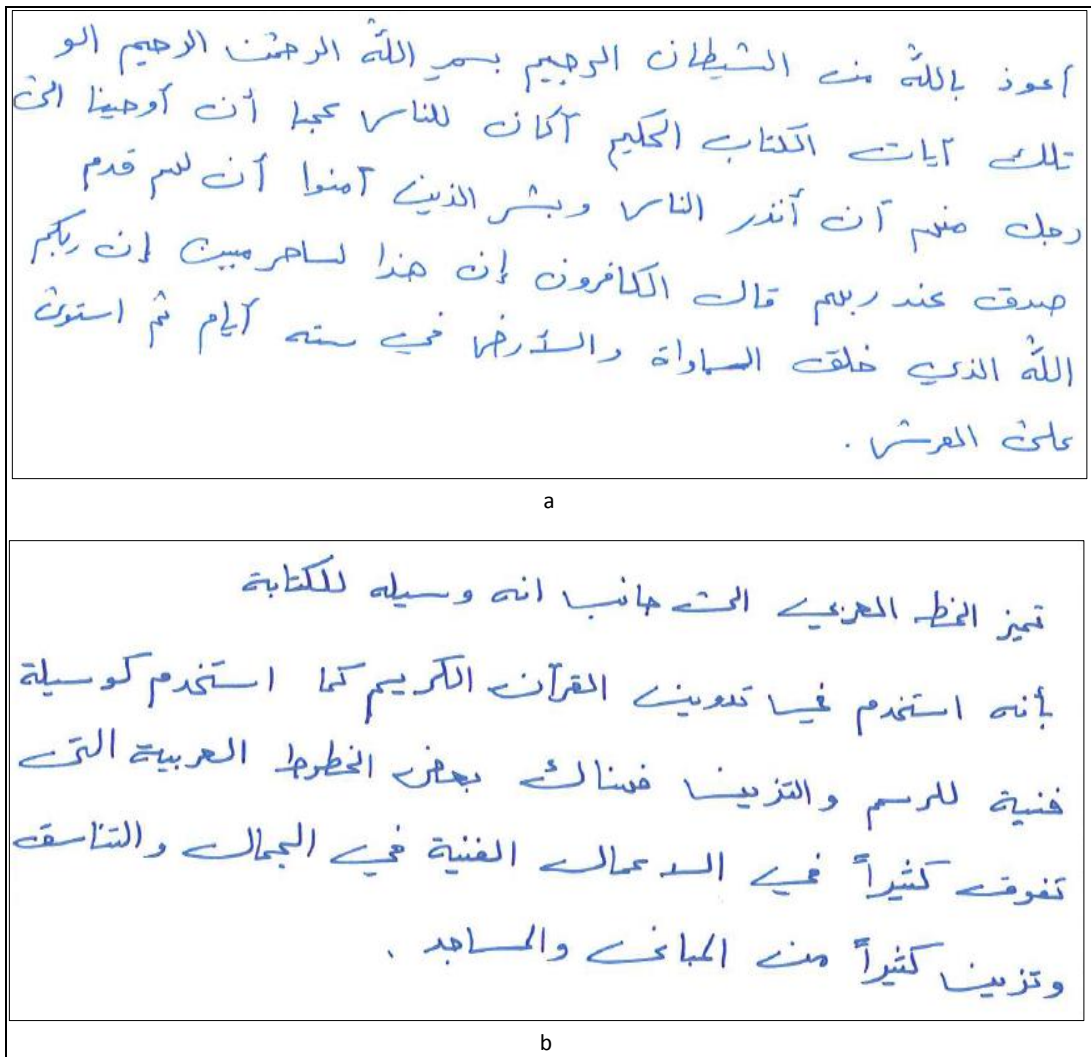 أعوذ بالله من الشيطان الرجيم بسم الله الرحمن الرحيم الو
تلك آيات الكتاب الحكيم أكان للناس عجبا أن أوحينا الى
رجل منهم أن أنذر الناس وبشر الذين آمنوا أن لهم قدم
صدق عند ربهم قال الكافرون إن هذا لساحر مبين إن ربكم
الله الذي خلق السماواة والأرض في سته أيام ثم استوى
على العرش .
a
تميز الخط العربي الى جانب انه وسيله للكتابة
بأنه استخدم في تدوين القرآن الكريم كما استخدم كوسيلة
فنية للرسم والتزيين فهناك بعض الخطوط العربية التى
تفوق كثيراً في الاعمال الفنية في الجمال والتناسق
وتزين كثيراً من المبانى والمساجد .
b